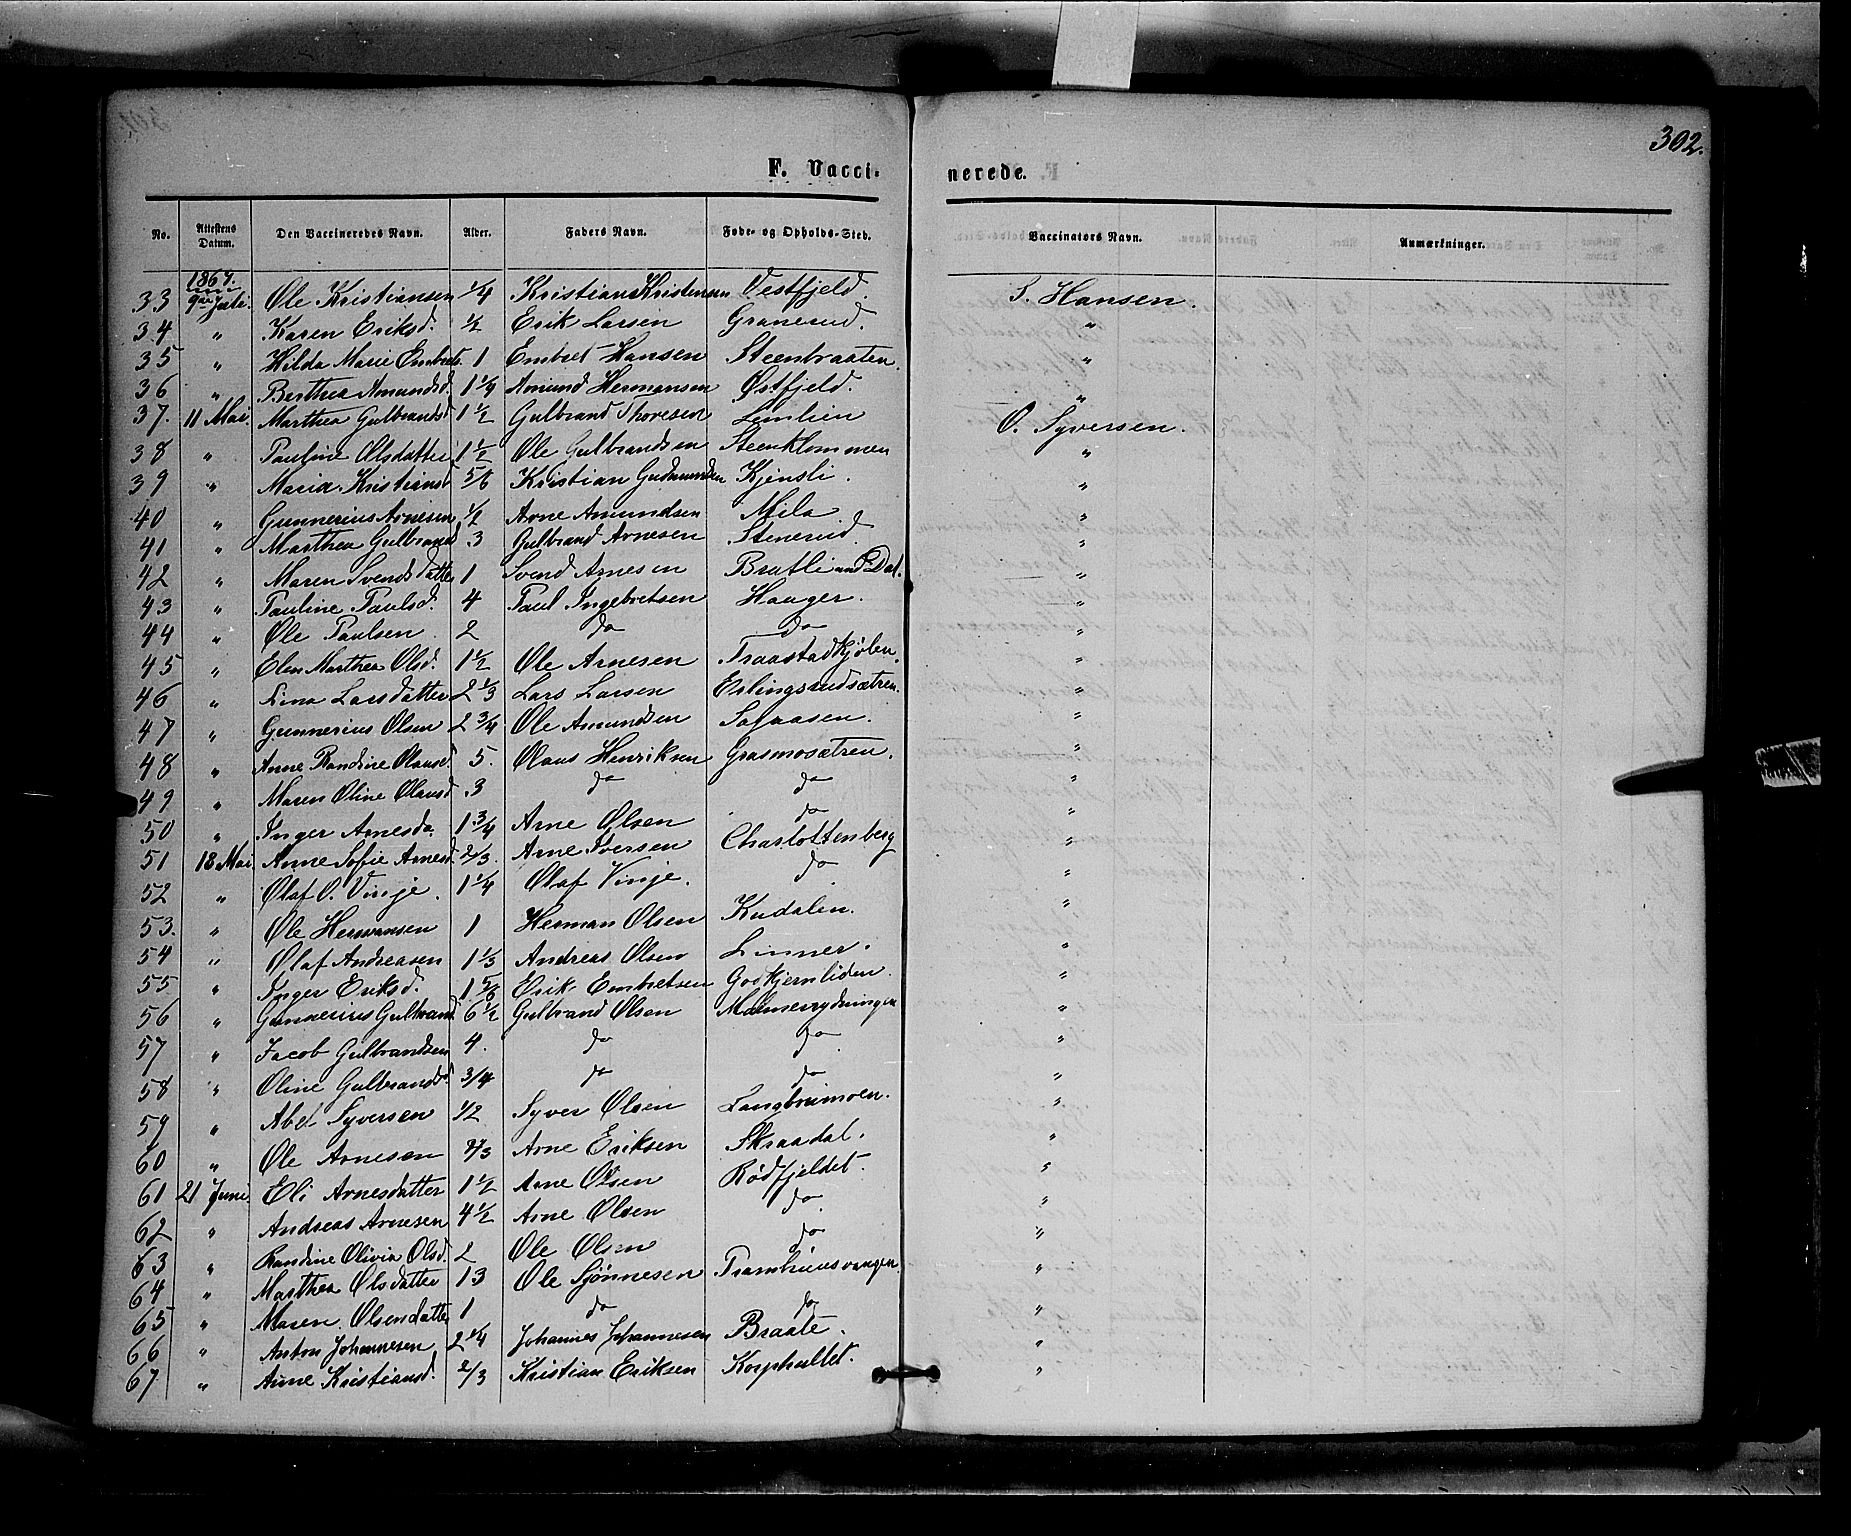 302.
F. Vaccinerede.
No. Attestens Datum. Den Vaccineredes Navn. Alder. Faders Navn. Føde- og Opholds-Sted. Vaccinators Navn. Anmærkninger.
1867.
33 Ole Kristiansen 1/4 Kristian Kristensen Vestfjeld. S. Hansen.
34 " Karen Eriksd. 1/2 Erik Larsen Granerud. "
35 " Hilda Marie Embrets. 1 Embret Hansen Steenbraaten. "
36 " Berthea Amundsd. 1 1/4 Amund Hermansen Østfjeld. "
37. 11 Mai. Marthea Gulbrandsd 1 1/2 Gulbrand Thoresen Lemlien O. Syversen.
38 " Pauline Olsdatter 1 1/2 Ole Gulbrandsen Steenklommen "
39 " Maria Kristiansd 5/6 Kristian Gudmundsen Kjensli. "
40 " Gunnerius Arnesen 1/2 Arne Amundsen Mila "
41 " Marthea Gulbrandsd 3 Gulbrand Arnesen Stenerud. "
42 " Maren Svendsdatter 1 Svend Arnesen Bratli Dal. "
43 " Pauline Paulsd. 4 Paul Ingebretsen Hauger. "
44 " Ole Paulsen. 2 do do "
45 " Elen Marthea Olsd. 1 1/2 Ole Arnesen Traastadkjølen. "
46 " Lina Larsdatter 2 1/3 Lars Larsen Eslingsrudsætren. "
47 " Gunnerius Olsen 2 3/4 Ole Amundsen Safaasen. "
48 " Anne Randine Olausd 5. Olaus Henriksen Grasmosætren. "
49 " Maren Oline Olausd 3 do do "
50 " Inger Arnesda. 1 3/4 Arne Olsen do "
51 18 Mai Anne Sofie Arnesd 2/3. Arne Iversen Charlottenberg "
52 " Olaf O. Vinje. 1 1/4 Olaf Vinje. do "
53. " Ole Hermansen 1 Herman Olsen Kudalen. "
54 " Olaf Andreasen 1 1/3 Andreas Olsen Linner. "
55 " Inger Eriksd. 1 5/6 Erik Embretsen Godkjernliden. "
56 " Gunnerius Gulbrands 6 1/2 Gulbrand Olsen Malmerydningen "
57 " Jacob Gulbrandsen 4. do do. "
58 " Oline Gulbrandsd 3/4 do do "
59 " Abel Syversen 1/2 Syver Olsen Langbrumoen. "
60 " Ole Arnesen 2/3 Arne Eriksen Skraadal. "
61 21 Juni Eli Arnesdatter 1 1/2 Arne Olsen Rødfjeldet. "
62 " Andreas Arnesen 4 1/2 Arne Olsen do "
63 " Randine Olivia Olsd. 2 Ole Olsen do "
64 " Marthea Olsdatter 13 Ole Sjønnesen Tramhuusvangen "
65 " Maren Olsendatter 1 do do "
66 " Anton Johannesen 2 1/4 Johannes Johannesen Braate. "
67 " Anne Kristiansd. 2/3 Kristian Eriksen Korphultet. "